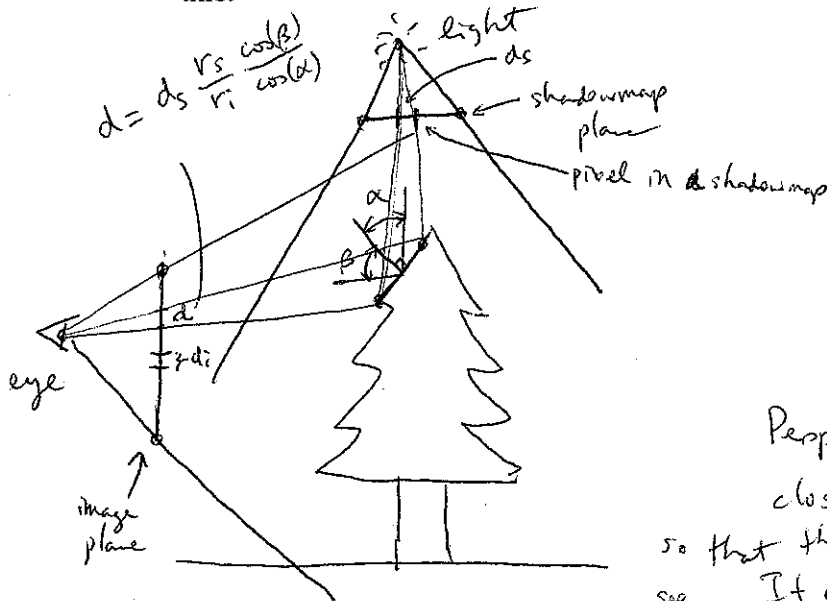 this.
light
d = ds rs/ri cos(β)/cos(α)
ds
shadowmap
plane
pixel in shadowmap
α
β
d
di
eye
image
plane
Persp
clos
so that th
see. It